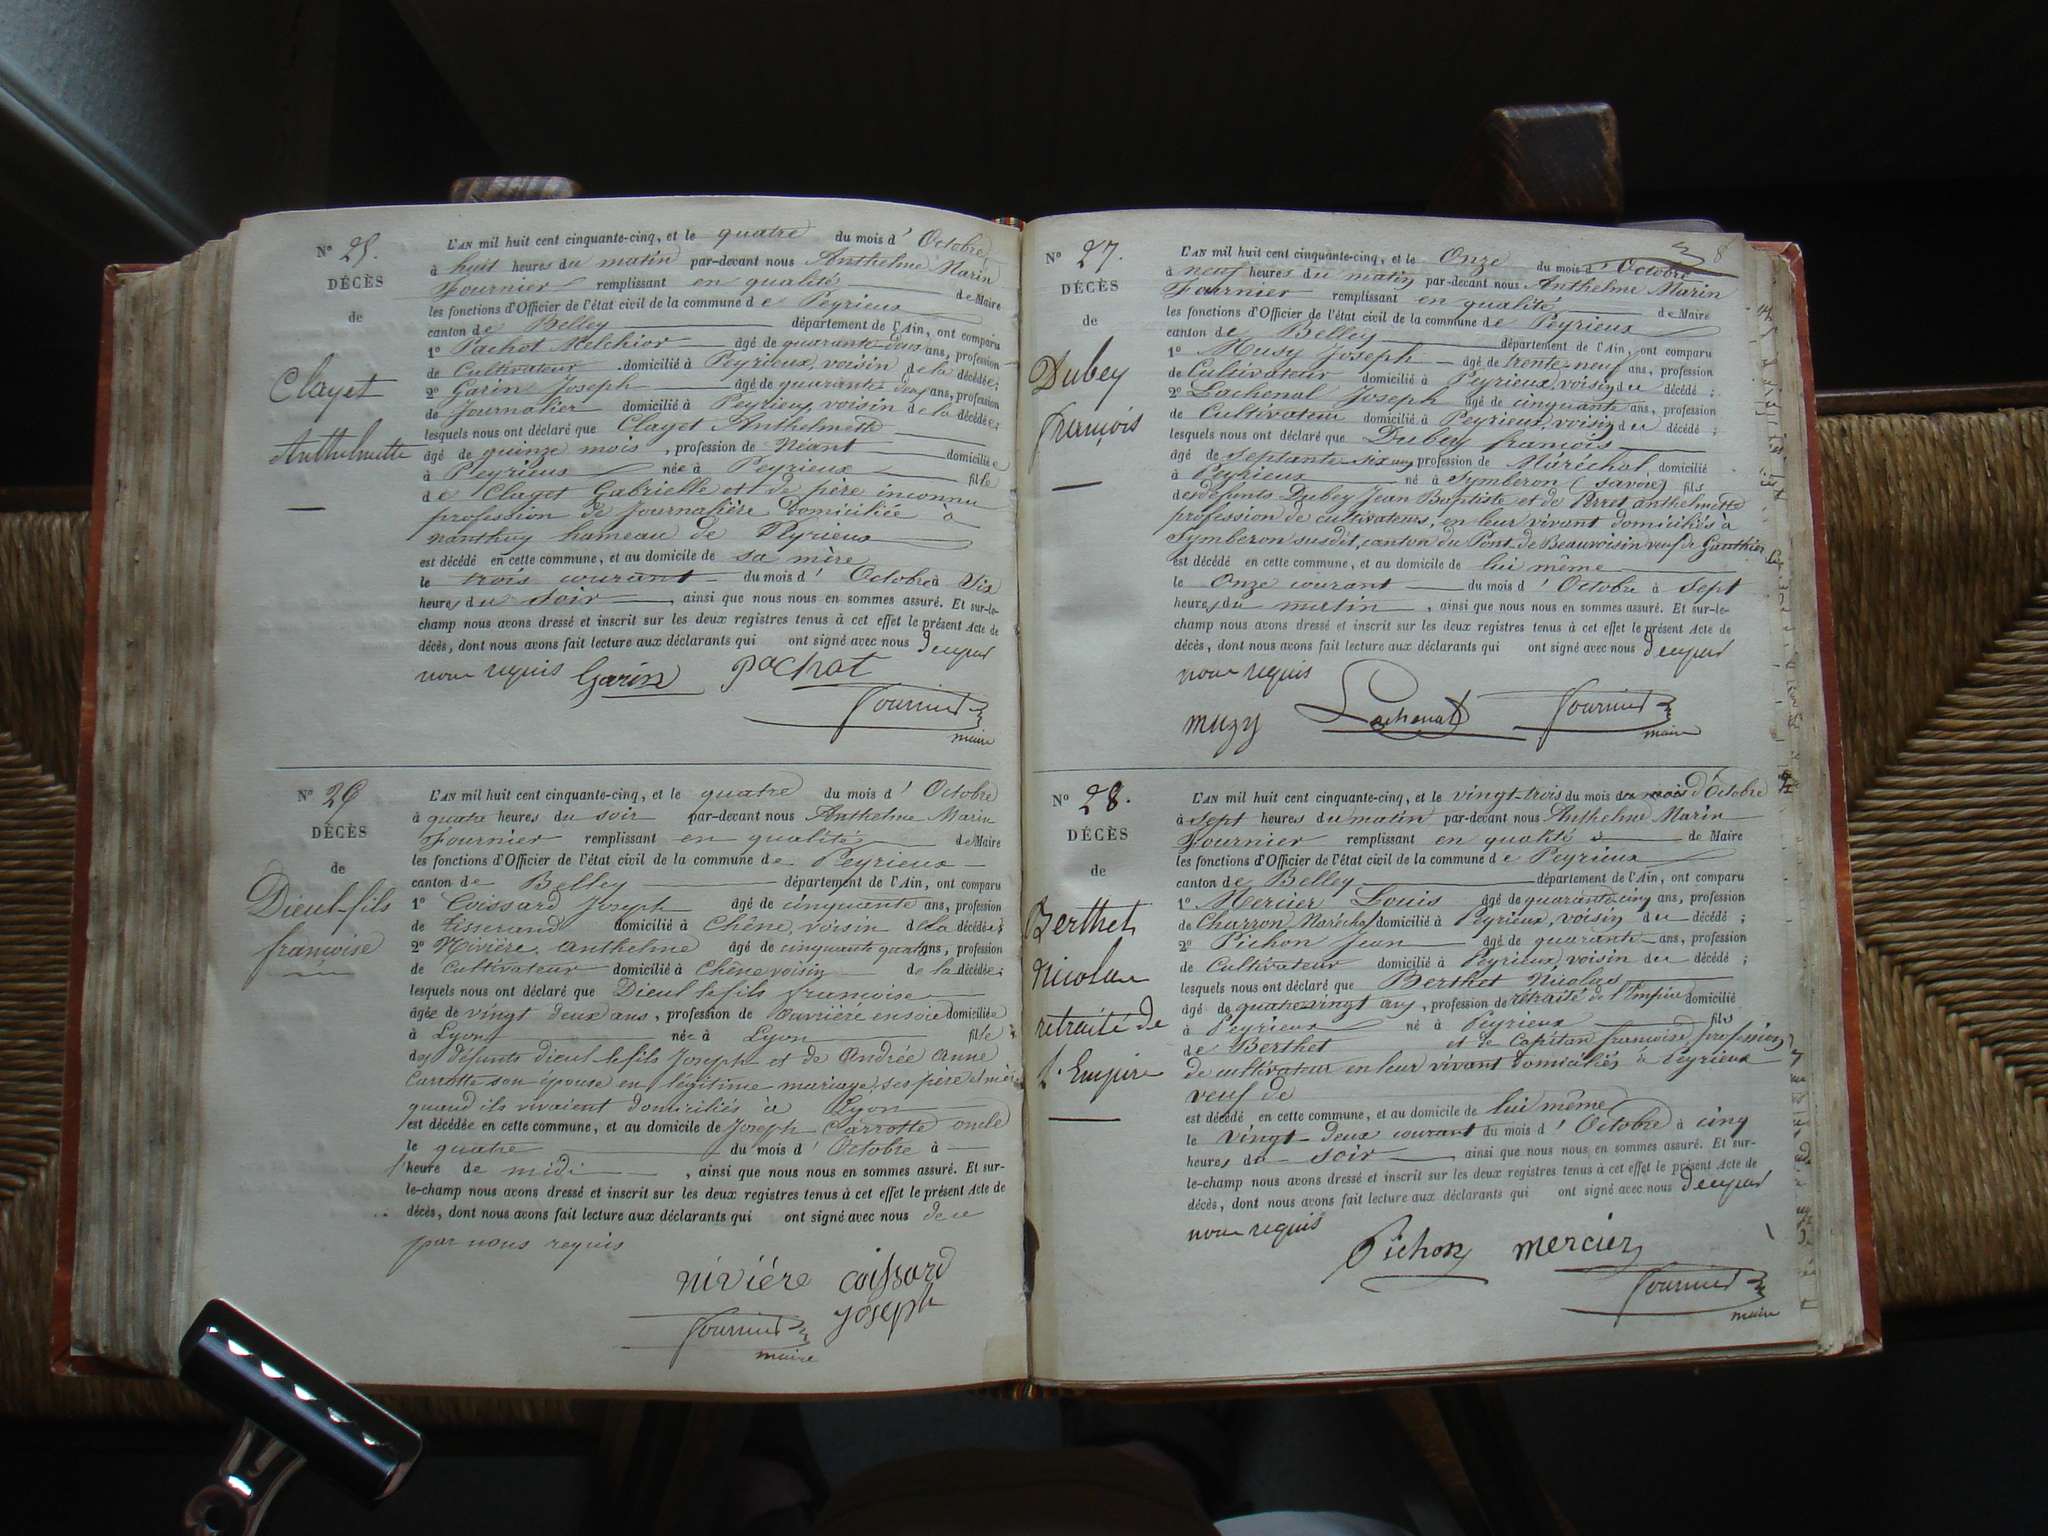 N° 25.
DÉCÈS
de
Clayet
Anthelmette
L'AN mil huit cent cinquante-cinq, et le quatre du mois d' Octobre
à huit heures du matin par-devant nous Anthelme Marin
Fournier remplissant en qualité de Maire
les fonctions d'Officier de l'état civil de la commune de Peyrieux
canton de Belley département de l'Ain, ont comparu
1° Pachot Melchior âgé de quarante-deux ans, profession
de Cultivateur domicilié à Peyrieux, voisin de la décédée;
2° Garin Joseph âgé de quarante deux ans, profession
de Journalier domicilié à Peyrieux, voisin de la décédée;
lesquels nous ont déclaré que Clayet Anthelmette
âgé de quinze mois, profession de Néant domiciliée
à Peyrieux née à Peyrieux fille
de Clayet Gabrielle et de père inconnu
profession de journalière domiciliée à
nanthuy hameau de Peyrieux
est décédé en cette commune, et au domicile de sa mère
le trois courant du mois d' Octobre à six
heures du soir, ainsi que nous nous en sommes assuré. Et sur-le-
champ nous avons dressé et inscrit sur les deux registres tenus à cet effet le présent Acte de
décès, dont nous avons fait lecture aux déclarants qui ont signé avec nous de ce par
nous requis Garin Pachot
Fournier
maire
N° 26
DÉCÈS
de
Dieul-fils
françoise
L'AN mil huit cent cinquante-cinq, et le quatre du mois d' Octobre
à quatre heures du soir par-devant nous Anthelme Marin
Fournier remplissant en qualité de Maire
les fonctions d'Officier de l'état civil de la commune de Peyrieux
canton de Belley département de l'Ain, ont comparu
1° Coissard Joseph âgé de cinquante ans, profession
de tisserand domicilié à Chêne, voisin de la décédée;
2° Nivière Anthelme âgé de cinquante quatre ans, profession
de Cultivateur domicilié à Chêne voisin de la décédée;
lesquels nous ont déclaré que Dieul le fils françoise
âgée de vingt deux ans, profession de ouvrière en soie domiciliée
à Lyon née à Lyon fille
des défunts Dieul le fils Joseph et de Andrée Anne
Carrotte son épouse en légitime mariage, ses père et mère
quand ils vivaient domiciliés à Lyon
est décédée en cette commune, et au domicile de Joseph Carrotte oncle
le quatre du mois d' Octobre à
l'heure de midi, ainsi que nous nous en sommes assuré. Et sur-
le-champ nous avons dressé et inscrit sur les deux registres tenus à cet effet le présent Acte de
décès, dont nous avons fait lecture aux déclarants qui ont signé avec nous de ce
par nous requis
nivière coissard
joseph
Fournier
maire
N° 27.
DÉCÈS
de
Dubey
françois
L'AN mil huit cent cinquante-cinq, et le Onze du mois d' Octobre
à neuf heures du matin par-devant nous Anthelme Marin
Fournier remplissant en qualité de Maire
les fonctions d'Officier de l'état civil de la commune de Peyrieux
canton de Belley département de l'Ain, ont comparu
1° Musy Joseph âgé de trente-neuf ans, profession
de Cultivateur domicilié à Peyrieux, voisin du décédé;
2° Lachenal Joseph âgé de cinquante ans, profession
de Cultivateur domicilié à Peyrieux, voisin du décédé;
lesquels nous ont déclaré que Dubey françois
âgé de septante-six ans profession de Maréchal, domicilié
à Peyrieux né à Symberon (savoie) fils
des défunts Dubey Jean Baptiste et de Perret anthelmette
profession de cultivateurs, en leur vivant domiciliés à
Symberon susdit, canton du Pont de Beauvoisin veuf de Gauthier
est décédé en cette commune, et au domicile de lui même
le Onze courant du mois d' Octobre à sept
heures du matin, ainsi que nous nous en sommes assuré. Et sur-le-
champ nous avons dressé et inscrit sur les deux registres tenus à cet effet le présent Acte de
décès, dont nous avons fait lecture aux déclarants qui ont signé avec nous de ce par
nous requis
muzy Lachenal Fournier
maire
N° 28.
DÉCÈS
de
Berthet
Nicolas
retraité de
l'Empire
L'AN mil huit cent cinquante-cinq, et le vingt-trois du mois d'Octobre
à sept heures du matin par-devant nous Anthelme Marin
Fournier remplissant en qualité de Maire
les fonctions d'Officier de l'état civil de la commune de Peyrieux
canton de Belley département de l'Ain, ont comparu
1° Mercier Louis âgé de quarante cinq ans, profession
de Charron Maréchal domicilié à Peyrieux, voisin du décédé;
2° Pichon Jean âgé de quarante ans, profession
de Cultivateur domicilié à Peyrieux, voisin du décédé;
lesquels nous ont déclaré que Berthet Nicolas
âgé de quatre-vingt ans, profession de rétraité de l'Empire domicilié
à Peyrieux né à Peyrieux fils
de Berthet et de Capitan françoise, profession
de cultivateur en leur vivant domiciliés à Peyrieux
veuf de
est décédé en cette commune, et au domicile de lui même
le vingt deux courant du mois d' Octobre à cinq
heures du soir, ainsi que nous nous en sommes assuré. Et sur-
le-champ nous avons dressé et inscrit sur les deux registres tenus à cet effet le présent Acte de
décès, dont nous avons fait lecture aux déclarants qui ont signé avec nous de ce par
nous requis
Pichon mercier
Fournier
maire